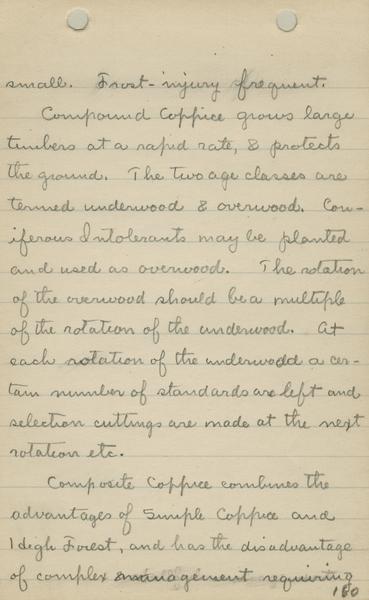 small. Frost-injury frequent.
Compound Coppice grows large
timbers at a rapid rate, & protects
the ground. The two age classes are
termed underwood & overwood. Con-
iferous Intolerants may be planted
and used as overwood. The rotation
of the overwood should be a multiple
of the rotation of the underwood. At
each rotation of the underwood a cer-
tain number of standards are left and
selection cuttings are made at the next
rotation etc.
Composite Coppice combines the
advantages of Simple Coppice and
High Forest, and has the disadvantage
of complex management requiring
180